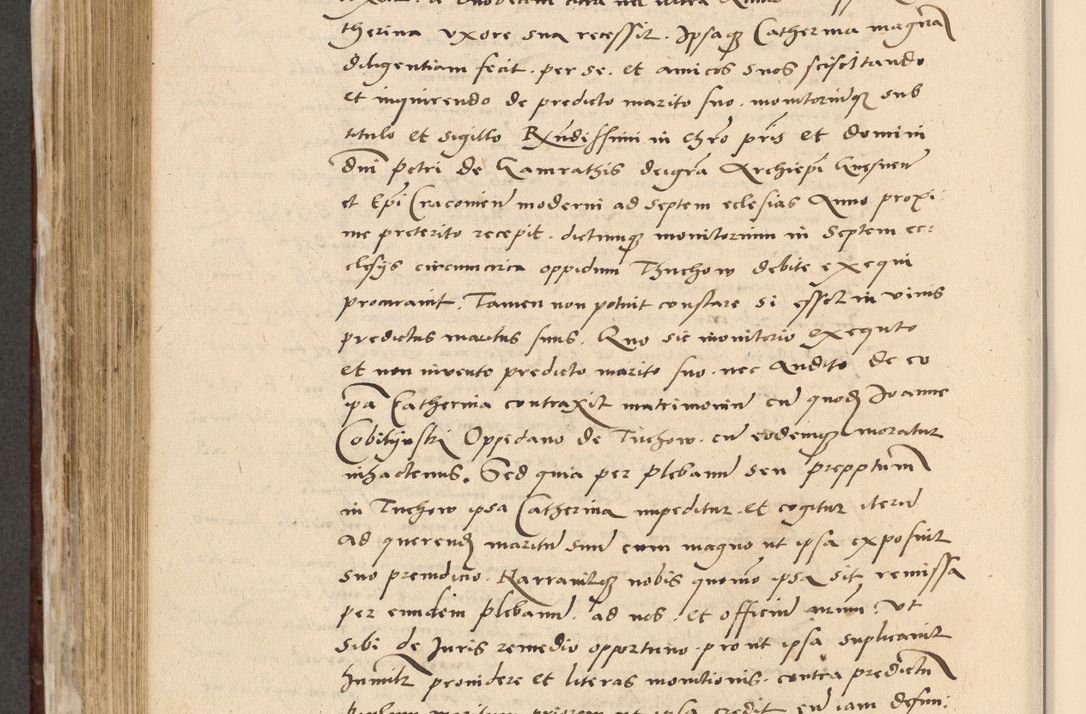 therina uxore sua recessit. Ipsaqz Catherina magnā
diligentiam fecit. per se. et amicos suos sciscitando
et inquirendo de predicto marito suo. monitoriūqz sub
titulo et sigillo Rxndissimi in chro pris et domini
dni petri de Gamrathis dei grā Archiepi Gnesnen
et Epi Cracovien moderni ad septem eclesias Anno proxi-
me preterito recepit. dictumqz monitorium in septem ec:
clesijs circumcirca oppidum Thuchow debite exequi
procuravit. Tamen non potuit constare si esset in vivis
predictus maritus suus. Quo sic monitorio exequto
et non invento predicto marito suo. nec Audito de eo
ipā Catherina contraxit matrimoniū cū quodā Joanne
Oppedano de Tuchow. cū eodemqz moratur
inhactenus. Sed quia per plebanū seu prepptum
in Tuchow ipsa Catherina impeditur. et cogitur iterū
ad querendū maritū suū cum magno ut ipsa exposuit
suo preiudicio. Narravitqz nobis quomō ipsa sit remissa
per eundem plebanū. ad nos. et officiū nrum. Ut
sibi de Juris remedio opportuno. prout ipsa suplicavit
humilr providere et literas monitionis. contra predictū